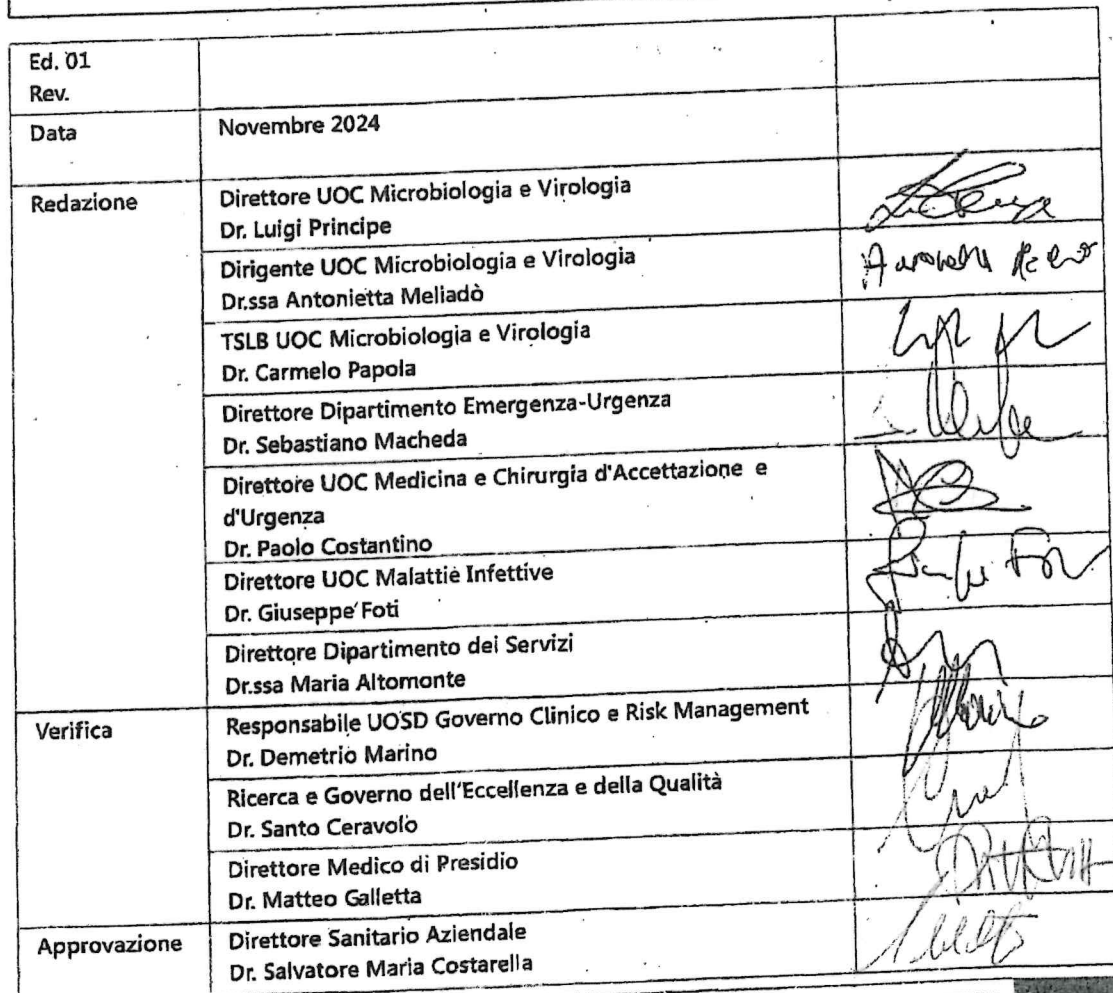 Ed. 01
Rev.
Data
Novembre 2024
Redazione
Direttore UOC Microbiologia e Virologia
Dr. Luigi Principe
Dirigente UOC Microbiologia e Virologia
Dr.ssa Antonietta Meliadò
TSLB UOC Microbiologia e Virologia
Dr. Carmelo Papola
Direttore Dipartimento Emergenza-Urgenza
Dr. Sebastiano Macheda
Direttore UOC Medicina e Chirurgia d'Accettazione e
d'Urgenza
Dr. Paolo Costantino
Direttore UOC Malattie Infettive
Dr. Giuseppe Foti
Direttore Dipartimento dei Servizi
Dr.ssa Maria Altomonte
Verifica
Responsabile UOSD Governo Clinico e Risk Management
Dr. Demetrio Marino
Ricerca e Governo dell'Eccellenza e della Qualità
Dr. Santo Ceravolo
Direttore Medico di Presidio
Dr. Matteo Galletta
Approvazione
Direttore Sanitario Aziendale
Dr. Salvatore Maria Costarella